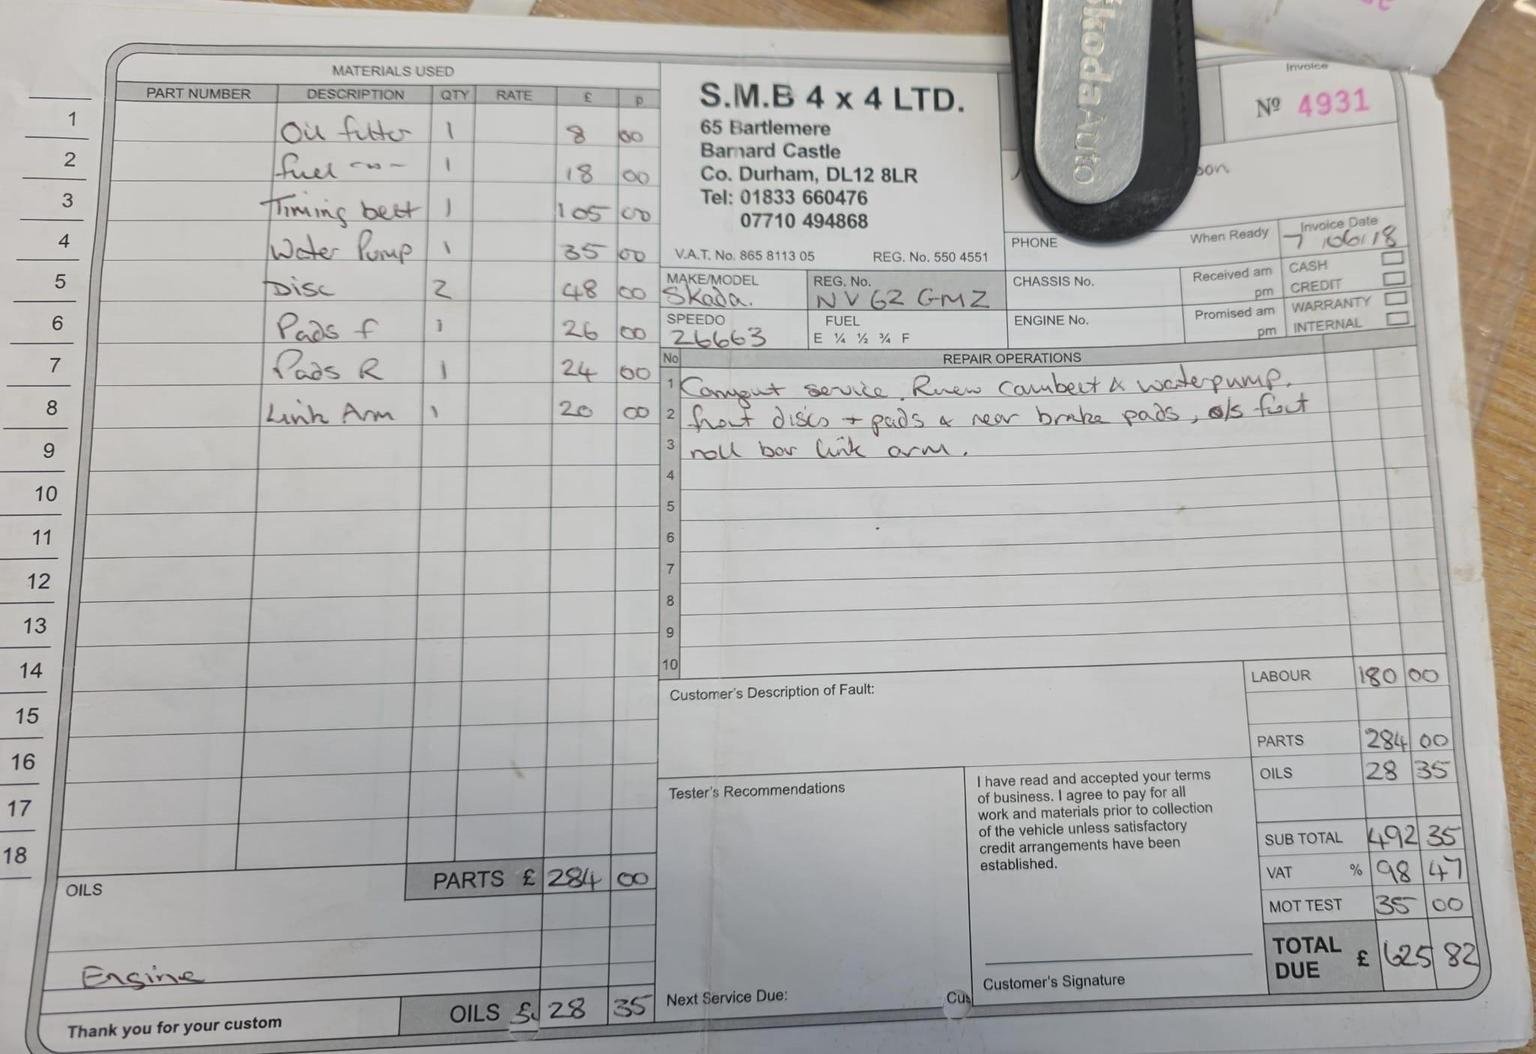 MATERIALS USED
PART NUMBER DESCRIPTION QTY RATE £ p
1 Oil filter 1 8 00
2 fuel 1 18 00
3 Timing belt 1 105 00
4 Water Pump 1 35 00
5 Disc 2 48 00
6 Pads f 1 26 00
7 Pads R 1 24 00
8 Link Arm 1 20 00
9
10
11
12
13
14
15
16
17
18
PARTS £ 284 00
OILS
Engine
OILS £ 28 35
Thank you for your custom
S.M.B 4 x 4 LTD.
65 Bartlemere
Barnard Castle
Co. Durham, DL12 8LR
Tel: 01833 660476
07710 494868
V.A.T. No. 865 8113 05 REG. No. 550 4551
SkodaAuto
Invoice
Nº 4931
PHONE
When Ready
Invoice Date
7/06/18
MAKE/MODEL
Skoda.
REG. No.
NV62 GMZ
CHASSIS No.
Received am
pm
CASH
CREDIT
SPEEDO
26663
FUEL
E ¼ ½ ¾ F
ENGINE No.
Promised am
pm
WARRANTY
INTERNAL
No REPAIR OPERATIONS
1 Carryout service. Renew cambelt & waterpump.
2 front discs + pads & rear brake pads, o/s front
3 roll bar link arm.
4
5
6
7
8
9
10
Customer's Description of Fault:
Tester's Recommendations
Next Service Due:
I have read and accepted your terms
of business. I agree to pay for all
work and materials prior to collection
of the vehicle unless satisfactory
credit arrangements have been
established.
Customer's Signature
LABOUR 180 00
PARTS 284 00
OILS 28 35
SUB TOTAL 492 35
VAT % 98 47
MOT TEST 35 00
TOTAL DUE £ 625 82